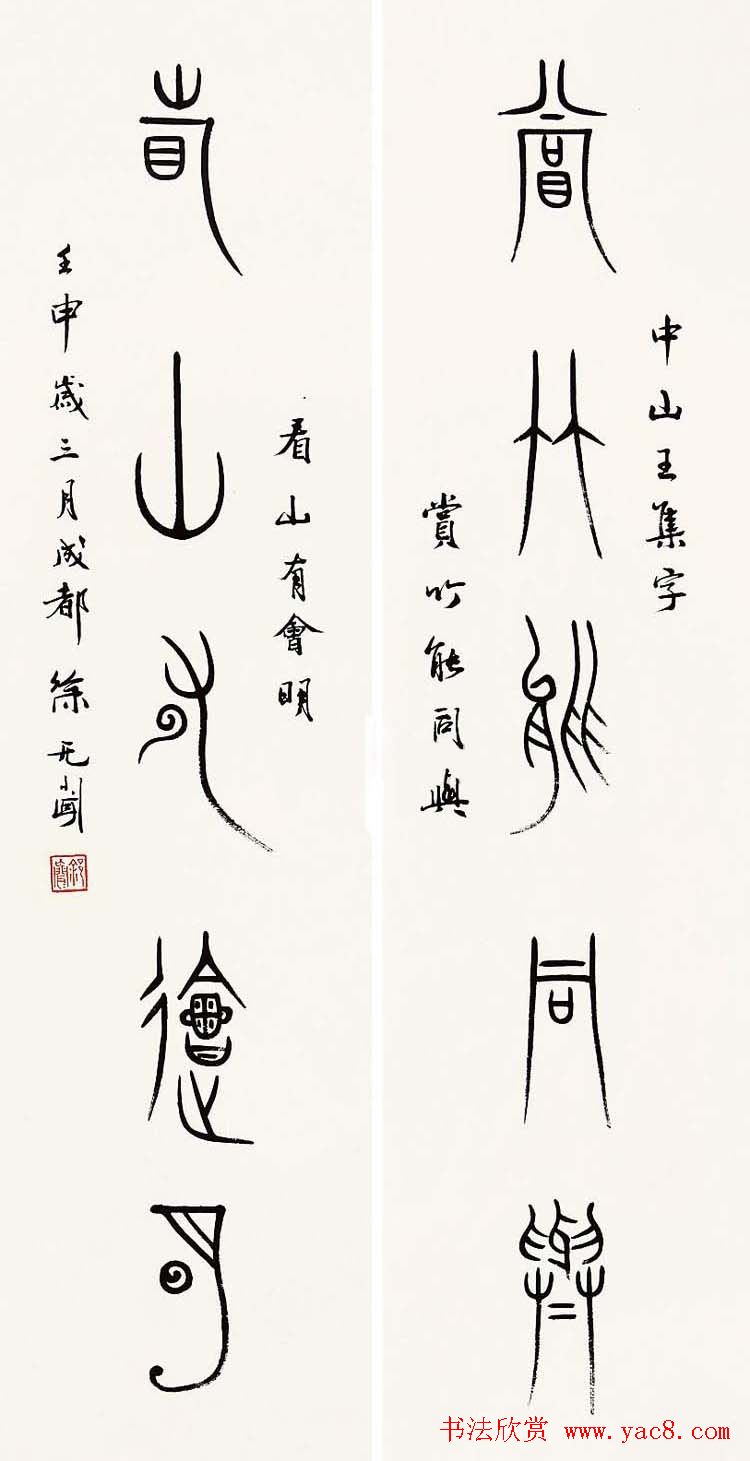 中山王集字
賞竹能同與
賞竹能同與
看山有會明
看山有會明
壬申歲三月成都徐无聞
书法欣赏 www.yac8.com